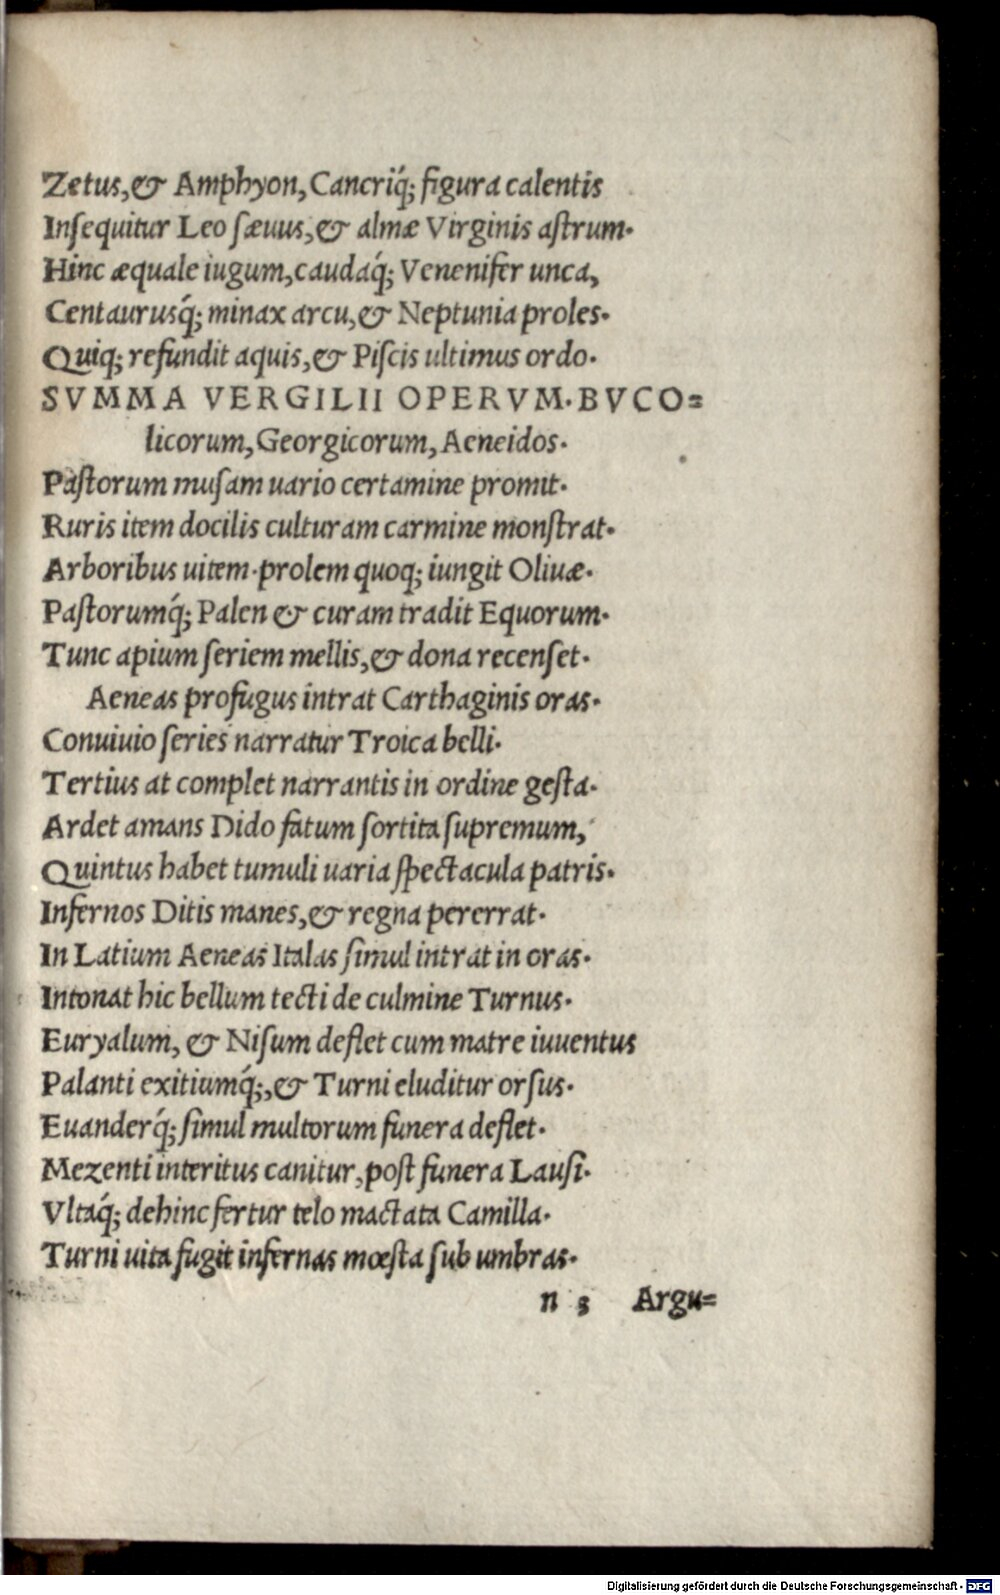 Zetus,& Amphyon, Cancriq́; figura calentis
Inſequitur Leo ſæuus,& almæ Virginis aſtrum.
Hinc æquale iugum,caudaq́; Venenifer unca,
Centaurusq́; minax arcu,& Neptunia proles.
Quiq; refundit aquis,& Piſcis ultimus ordo.
SVMMA VERGILII OPERVM.BVCO=
licorum, Georgicorum, Aeneidos.
Paſtorum muſam uario certamine promit.
Ruris item docilis culturam carmine monſtrat.
Arboribus uitem.prolem quoq; iungit Oliuæ.
Paſtorumq́; Palen & curam tradit Equorum.
Tunc apium ſeriem mellis,& dona recenſet.
Aeneas profugus intrat Carthaginis oras.
Conuiuio ſeries narratur Troica belli.
Tertius at complet narrantis in ordine geſta.
Ardet amans Dido fatum ſortita ſupremum,
Quintus habet tumuli uaria ſpectacula patris.
Infernos Ditis manes,& regna pererrat.
In Latium Aeneas Italas ſimul intrat in oras.
Intonat hic bellum tecti de culmine Turnus.
Euryalum, & Niſum deflet cum matre iuuentus
Palanti exitiumq́;,& Turni eluditur orſus.
Euanderq́; ſimul multorum funera deflet.
Mezenti interitus canitur,poſt funera Lauſi.
Vltaq́; dehinc fertur telo mactata Camilla.
Turni uita fugit infernas mœſta ſub umbras.
n 3 Argu=
Digitalisierung gefördert durch die Deutsche Forschungsgemeinschaft · DFG